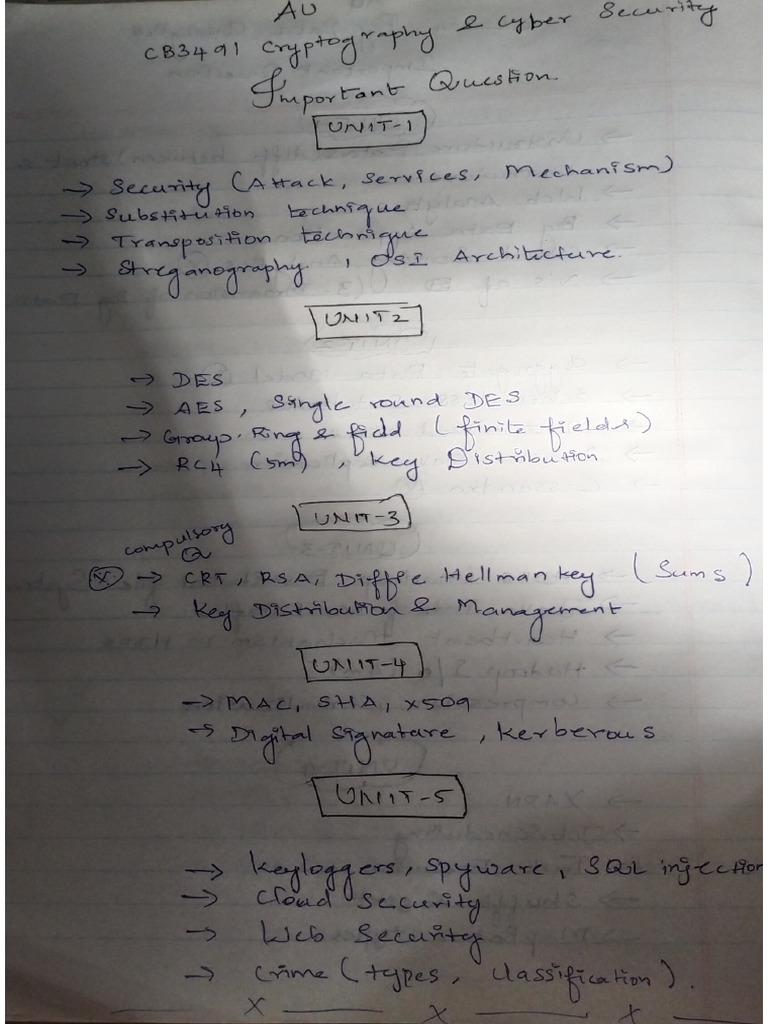 AU
CB3491 Cryptography & Cyber Security
Important Question.
UNIT-1
→ Security (Attack, Services, Mechanism)
→ Substitution technique
→ Transposition technique
→ Streganography, OSI Architecture.
UNIT2
→ DES
→ AES, Single round DES
→ Group. Ring & field (finite fields)
→ RC4 (5m), Key Distribution
UNIT-3
compulsory
Q
→ CRT, RSA, Diffie Hellman key (Sums)
→ Key Distribution & Management
UNIT-4
→ MAC, SHA, X509
→ Digital Signature, Kerberous
UNIT-5
→ Keyloggers, Spyware, SQL injection
→ Cloud Security
→ Web Security
→ Crime (types, classification).
x x x